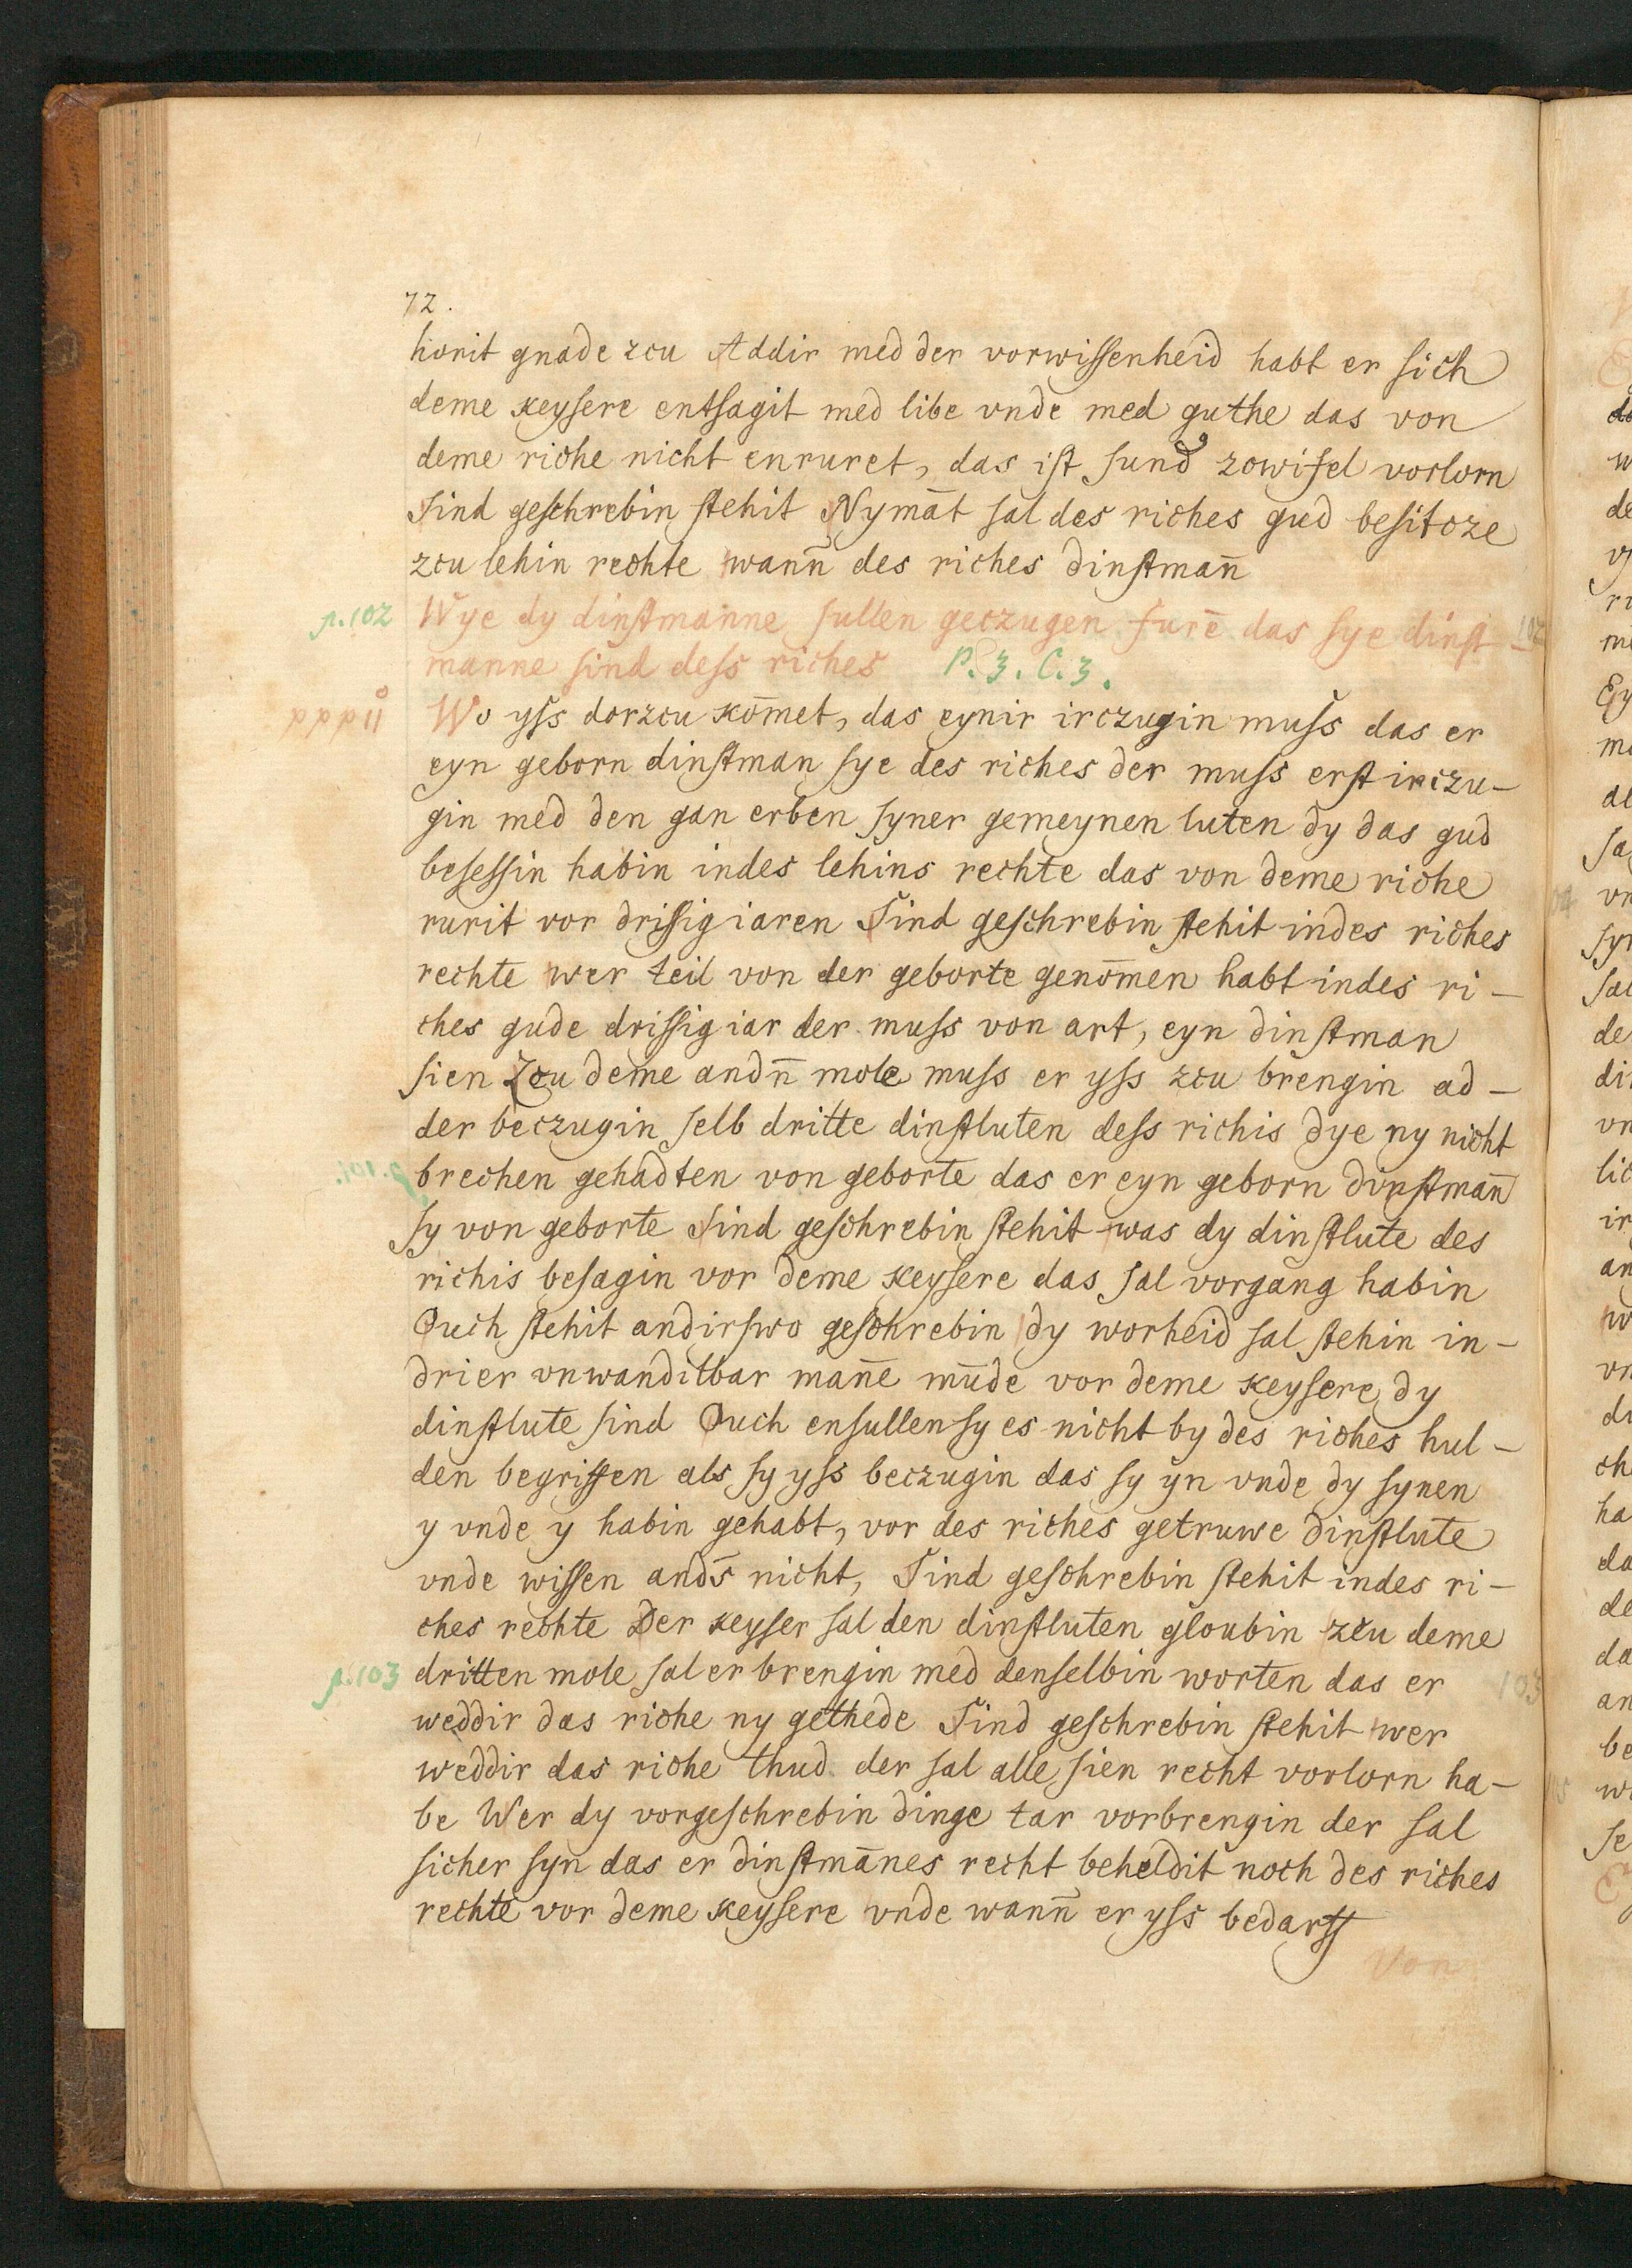 72.
horit gnade zcu Addir med der vorwissenheid habt er sich
deme keysere entsagit med libe vnde med guthe das von
deme riche nicht enruret, das ist sund zcwifel vorlorn
Sind geschrebin stehit Nymāt sal des riches gud besitcze
zcu lehin rechte wann̄ des riches dinstman̄
p.102 Wye dy dinstmanne sullen geczugen furē das sye dinst-
manne sind dess riches P. 3. C. 3.
Wo yss dorzcu kōmet, das eynir irczugin muss das er
eyn geborn dinstman sye des riches der muss erst irczu-
gin med den gan erben syner gemeynen luten dy das gud
besessin habin indes lehins rechte das von deme riche
rurit vor drissig iaren Sind geschrebin stehit indes riches
rechte wer teil von der geborte genōmen habt indes ri-
ches gude drissig iar der muss von art, eyn dinstman
sien Zcu deme andn̄ mole muss er yss zcu brengin ad-
der beczugin selb dritte dinstluten dess richis dye ny nicht
brechen gehadten von geborte das er eyn geborn dinstman̄
sy von geborte Sind geschrebin stehit was dy dinstlute des
richis besagin vor deme keysere das sal vorgang habin
Ouch stehit andirswo geschrebin dy worheid sal stehin in-
drier vnwanditbar man̄e mūde vor deme keysere dy
dinstlute sind Ouch ensullen sy es nicht by des riches hul-
den begriffen als sy yss beczugin das sy yn vnde dy synen
y vnde y habin gehabt, vor des riches getruwe dinstlute
vnde wissen ands̄ nicht, Sind geschrebin stehit indes ri-
ches rechte Der keyser sal den dinstluten gloubin zcu deme
p.103 dritten mole sal er brengin med denselbin worten das er
weddir das riche ny gethede Sind geschrebin stehit wer
weddir das riche thud der sal alle sien recht vorlorn ha-
be Wer dy vorgeschrebin dinge tar vorbrengin der sal
sicher syn das er dinstmānes recht beheldit noch des riches
rechte vor deme keysere vnde wann̄ er yss bedarff
Von